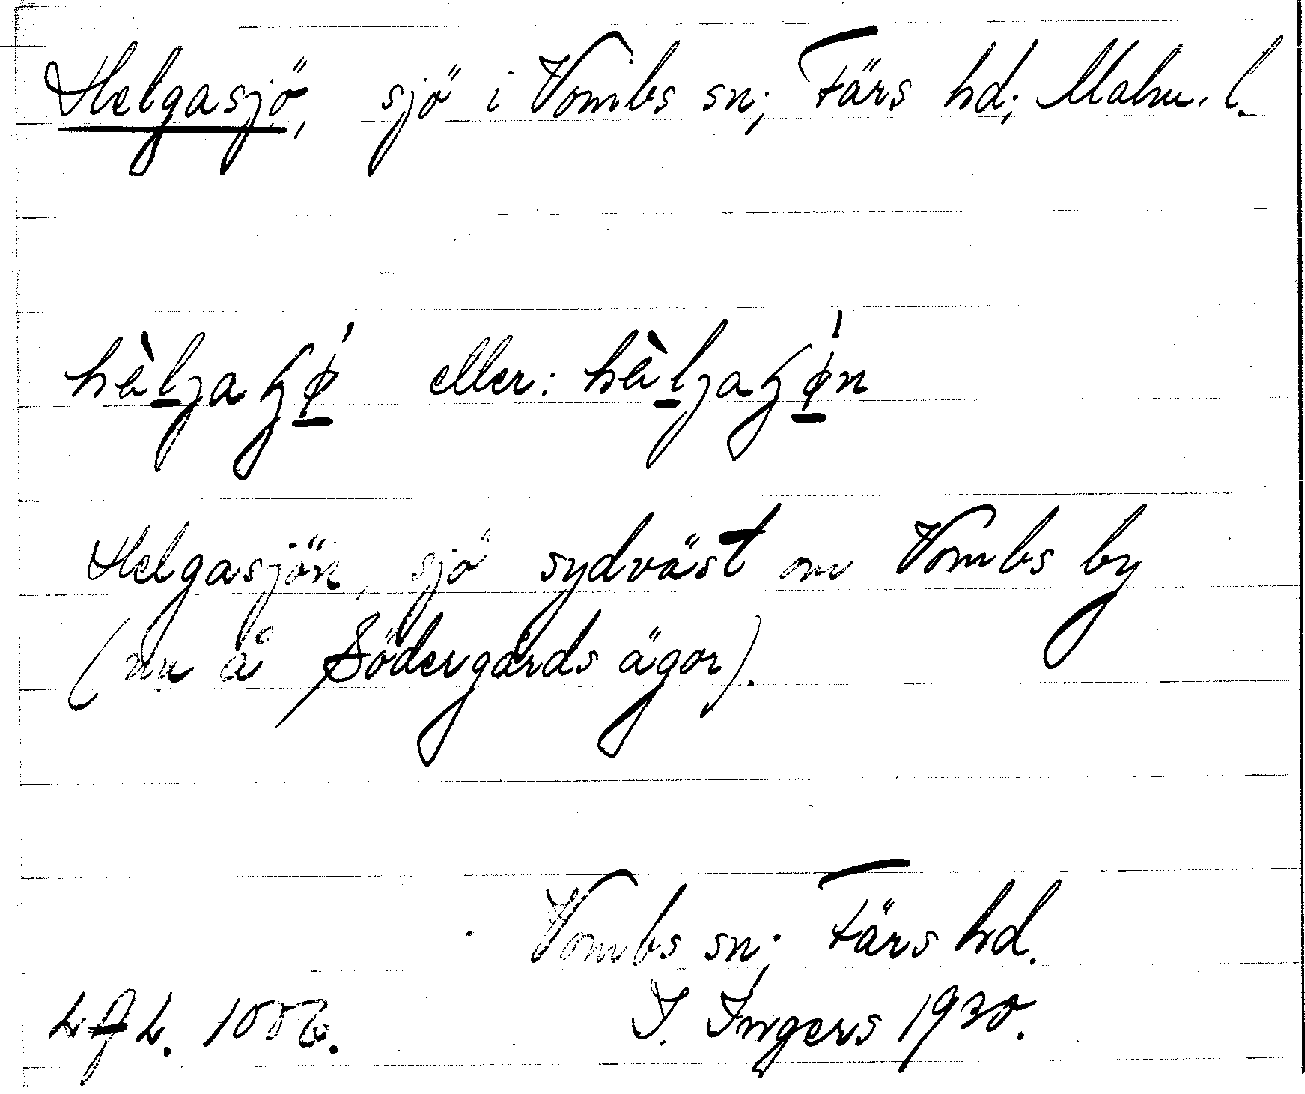 Helgasjö, sjö i Vombs sn; Färs hd; Malm. l.
hὲljaʂø̀ eller: hὲljaʂø̀n
Helgasjön, sjö sydväst om Vombs by
(nu å Södergårds ägor).
Vombs sn; Färs hd.
I. Ingers 1920.